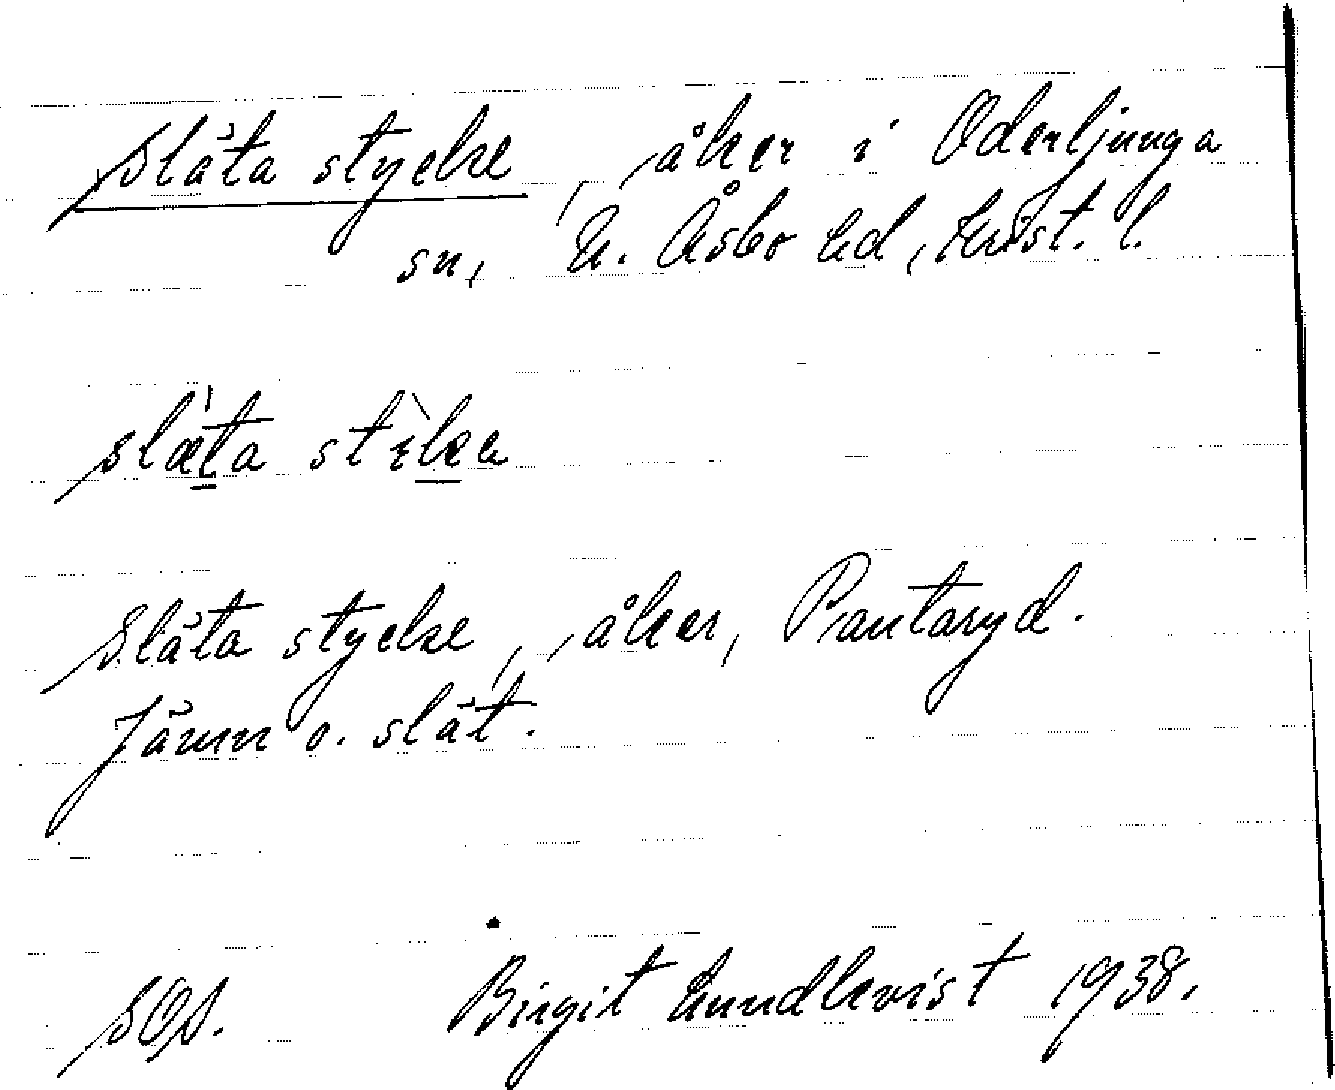 Släta stycke, åker i Oderljunga
sn, N. Åsbo hd, Krist. l.
slæ̀ta stìkə
Släta stycke, åker, Pantaryd.
Jämn o. slät.
SOS. Birgit Lundkvist 1938.